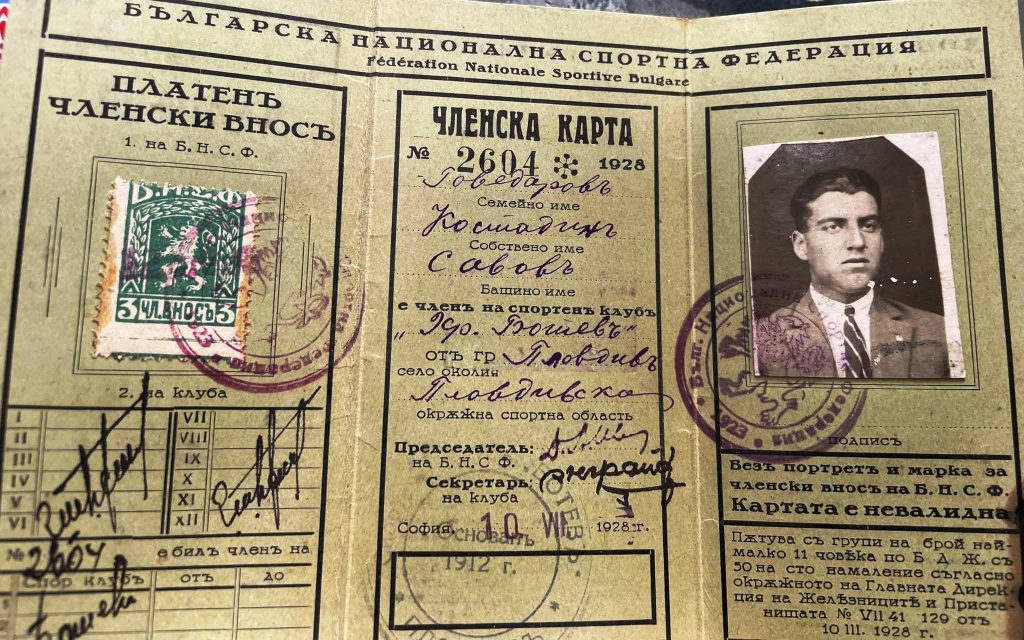 БЪЛГАРСКА НАЦИОНАЛНА СПОРТНА ФЕДЕРАЦИЯ
Fédération Nationale Sportive Bulgare
ПЛАТЕНЪ
ЧЛЕНСКИ ВНОСЪ
1. на Б. Н. С. Ф.
Б.Н.С.Ф
3 ЧЛ.ВНОСЪ 3
2. на клуба
I VII
II VIII
III IX
IV X
V XI
VI XII
№ 2604 е билъ членъ на
Спор. клубъ отъ до
ЧЛЕНСКА КАРТА
№ 2604 1928
Говедаровъ
Семейно име
Костадинъ
Собствено име
Савовъ
Бащино име
е членъ на спортенъ клубъ
"Хр. Ботевъ"
отъ гр. Пловдивъ
село околия
Пловдивска
окрѫжна спортна область
Председатель:
на Б. Н. С. Ф.
Секретарь:
на клуба
София, 10 VII 1928 г.
БОТЕВЪ
Основанъ
1912 г.
Бълг. Национална Спортна Федерация • 1923
подпись
Безъ портретъ и марка за
членски вносъ на Б. Н. С. Ф.
Картата е невалидна
Пѫтува съ групи на брой най-
малко 11 човѣка по Б. Д. Ж. съ
50 на сто намаление съгласно
окрѫжното на Главната Дирек-
ция на Желѣзницитѣ и Приста-
нищата № VII 41 129 отъ
10 III. 1928 г.